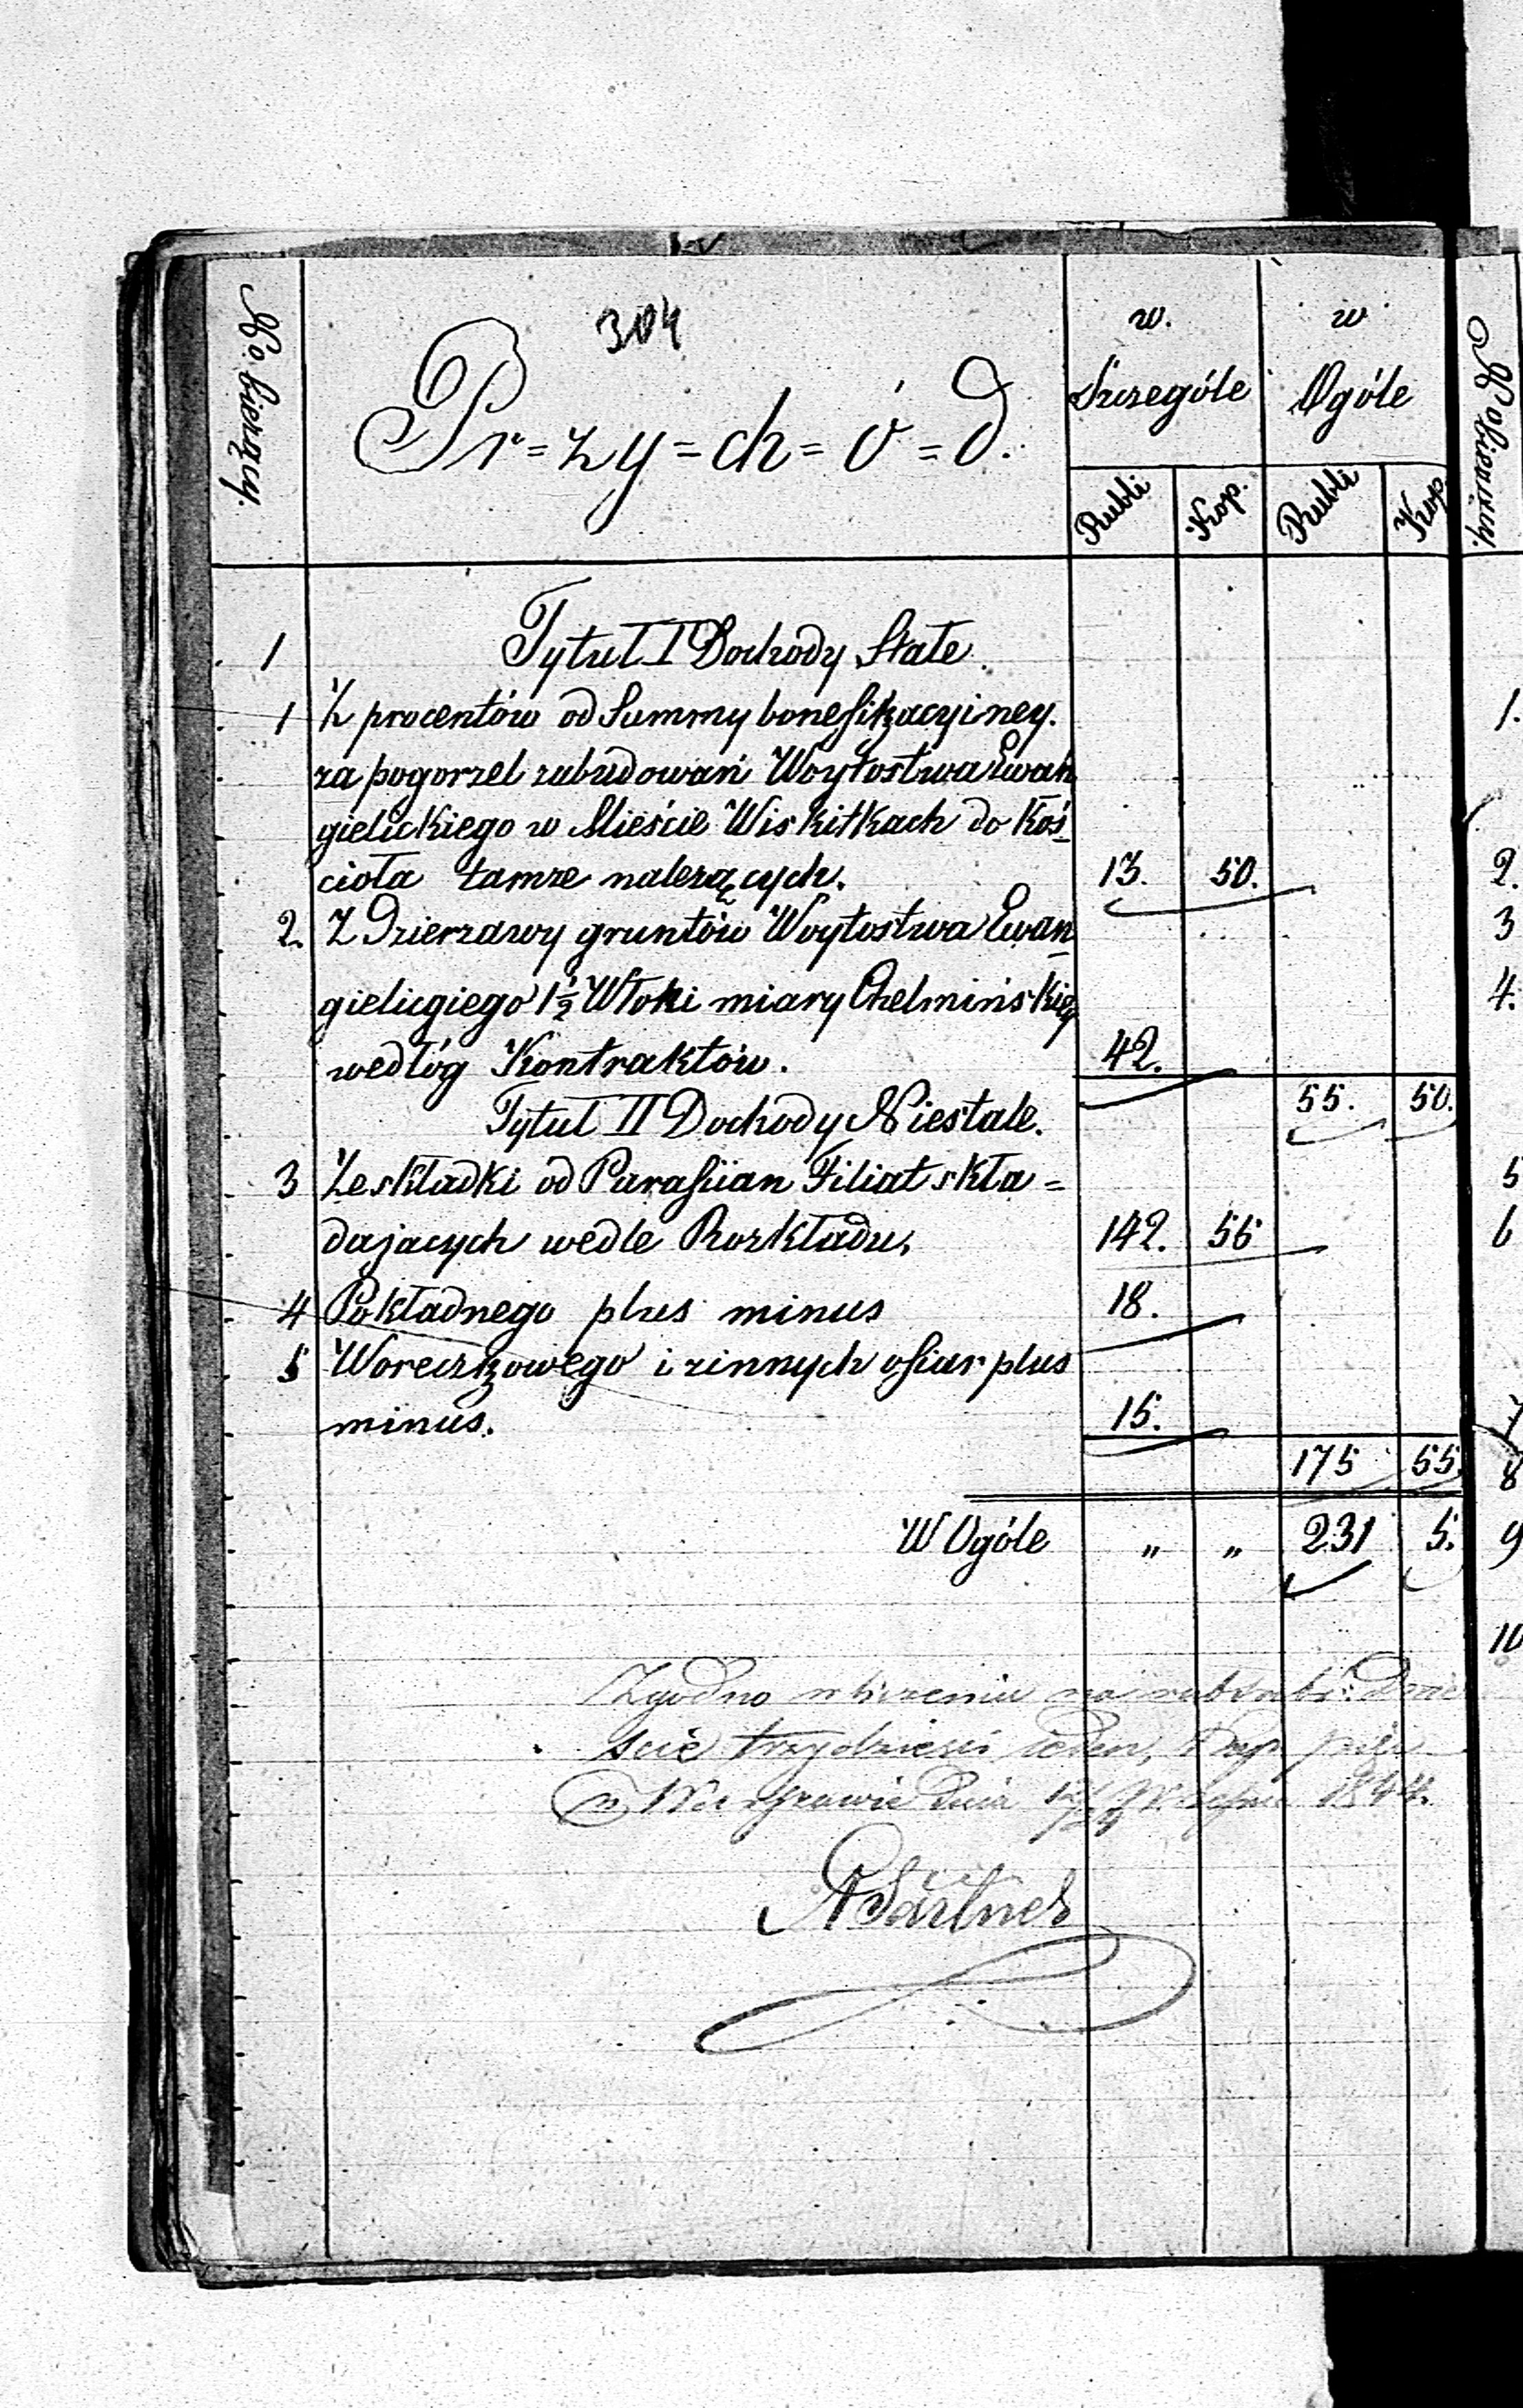 304
No bieżący.
Pr=zy=ch=ó=d.
w.
Szczególe
w
Ogóle
No bieżący.
Rubli
Kop.
Rubli
Kop.
1 Tytuł I Dochody Stałe.
1 Z procentów od Summy bonefikacyiney.
za pogorzel zabudowań Woytostwa Ewan
gielickiego w Mieście Wiskitkach do Koś=
cioła tamże należących. 13. 50.
2. Z Dzierzawy gruntów Woytostwa Ewan=
gielicgiego 1½ Włoki miary Chelmińskiey
wedlóg Kontraktów. 42.
55. 50.
Tytuł II Dochody Niestale.
3 Ze składki od Parafiian Filiał skła=
dajacych wedle Rozkładu. 142. 55
4 Pokładnego plus minus 18.
5 Woreczkowego i zinnych ofiar plus
minus. 15.
175 55.
W Ogóle " " 231 5.
Zgodno
ście trzydzieści jeden,
w Warszawie Dnia 1844.
1.
2.
3
4.
5
6
7
8
9
10